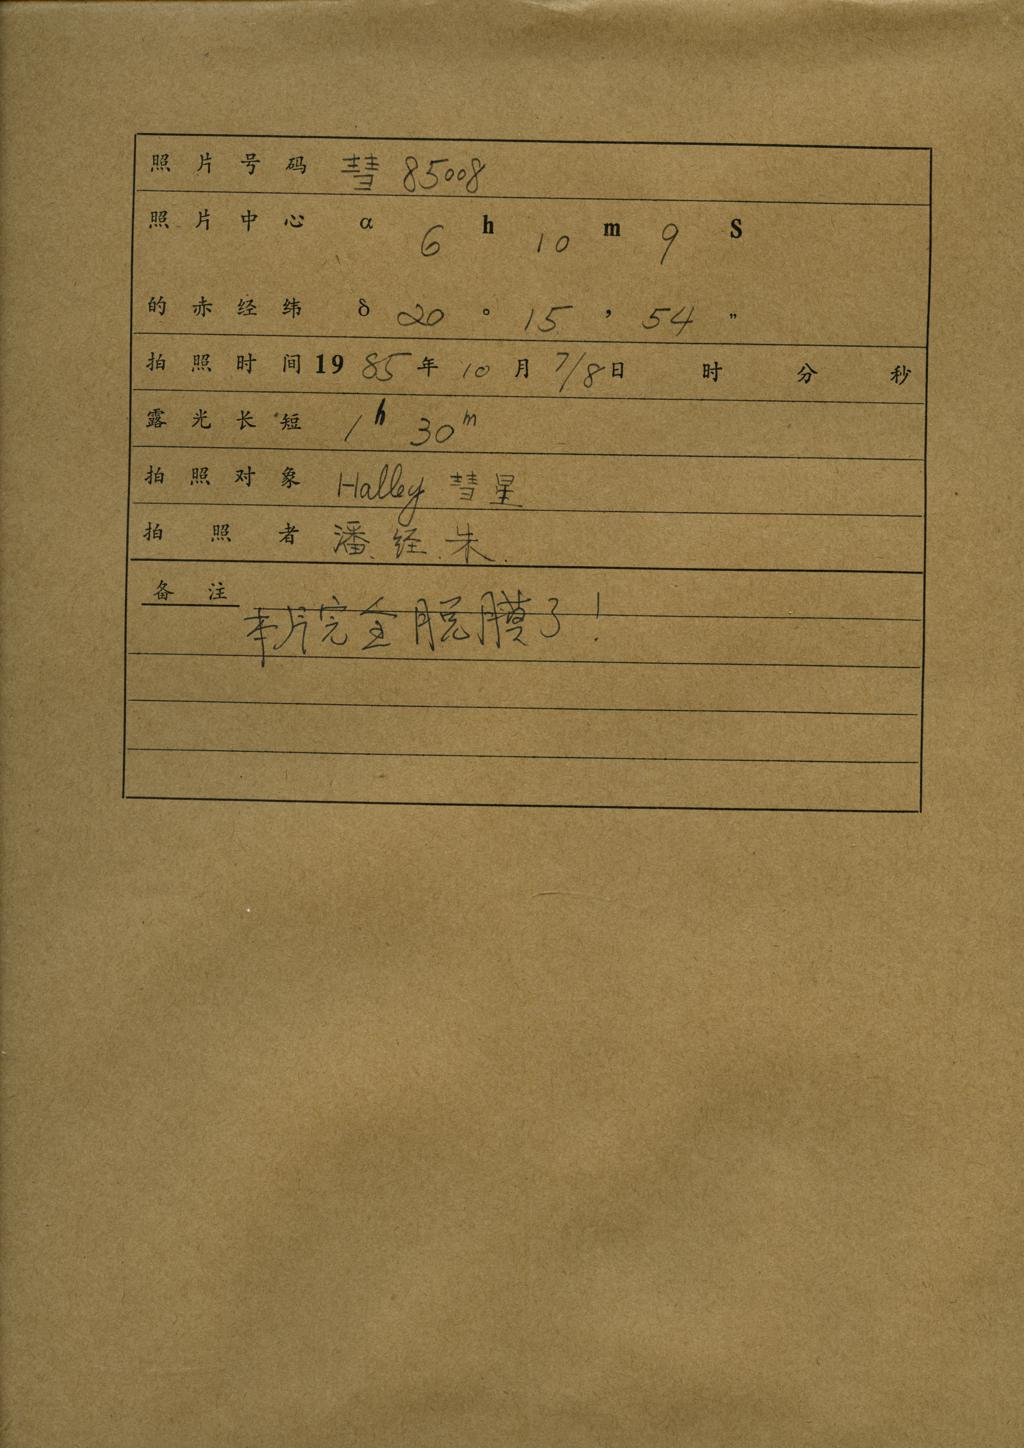 照片号码 彗 85008
照片中心 α 6 h 10 m 9 S
的赤经纬 δ 20 ° 15 ′ 54 ″
拍照时间 19 85 年 10 月 7/8 日 时 分 秒
露光长短 1h 30m
拍照对象 Halley 彗星
拍照者 潘、经、朱.
备注
本片完全脱膜了!